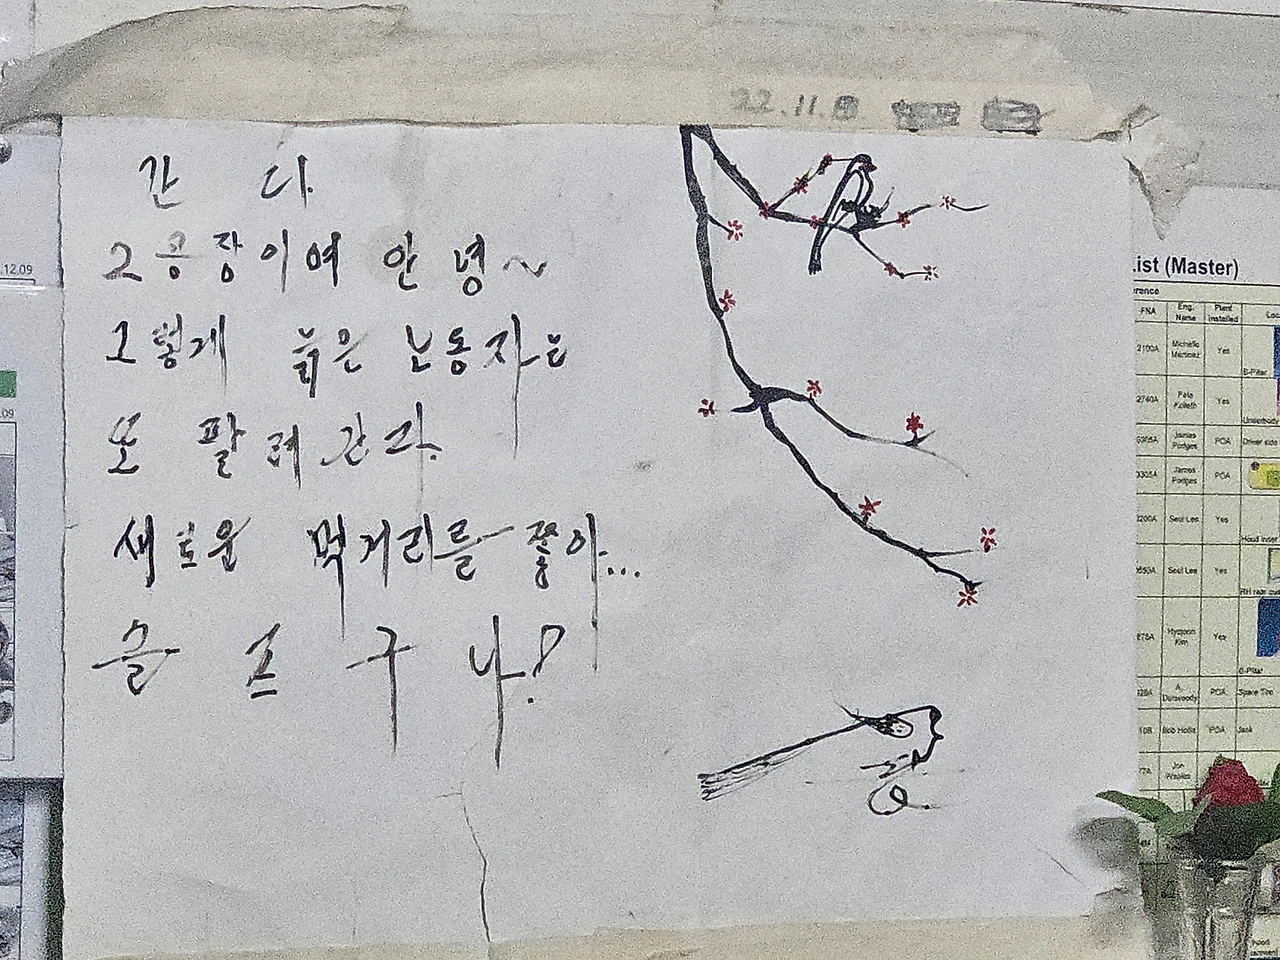 22.11.8
간 다
2공장이여 안녕~
그렇게 늙은 노동자는
또 팔려간다.
새로운 먹거리를 쫓아...
슬 프 구 나!
12.09
.09
List (Master)
FNA
Eng. Name
Plant Installed
2100A
Michelle Martinez
Yes
B-Pillar
2740A
Yes
Underbody
James Podges
POA
Driver side
3305A
James Podges
POA
Seul Lee
Yes
Hood inner
Seul Lee
Yes
Hyejoon Kim
Yes
POA
Spare Tire
Bob Hollis
POA
Jack
Jon